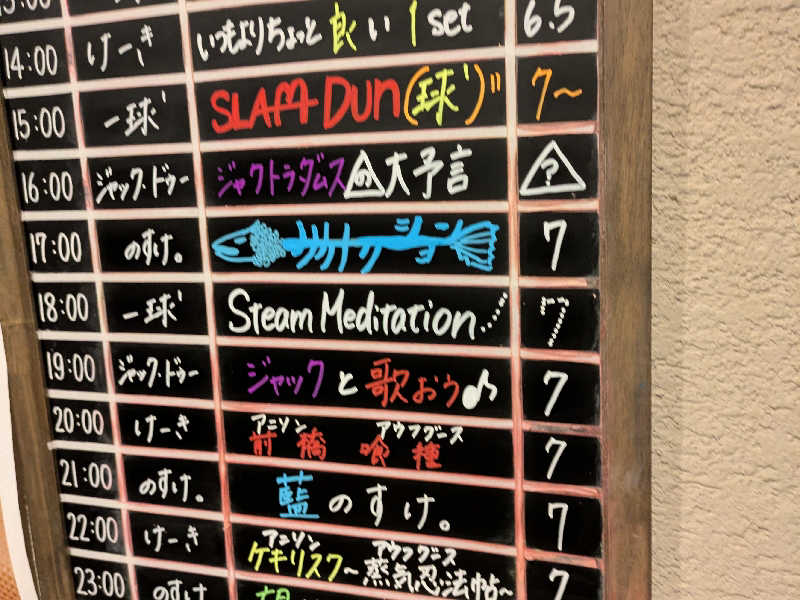 14:00 けーき いつもよりちょっと良い1set 6.5
15:00 一球' SLAM DUN(球')" 7~
16:00 ジャック・ドゥー ジャクトラダムスの大予言 ?
17:00 のすけ。 7
18:00 一球' Steam Meditation..... 7
19:00 ジャック・ドゥー ジャックと歌おう♪ 7
アニソン アウフグース
20:00 けーき 前橋喰種 7
21:00 のすけ。 藍のすけ。 7
アニソン アウフグース
22:00 けーき ゲキリスク~蒸気忍法帖~ 7
23:00 のすけ